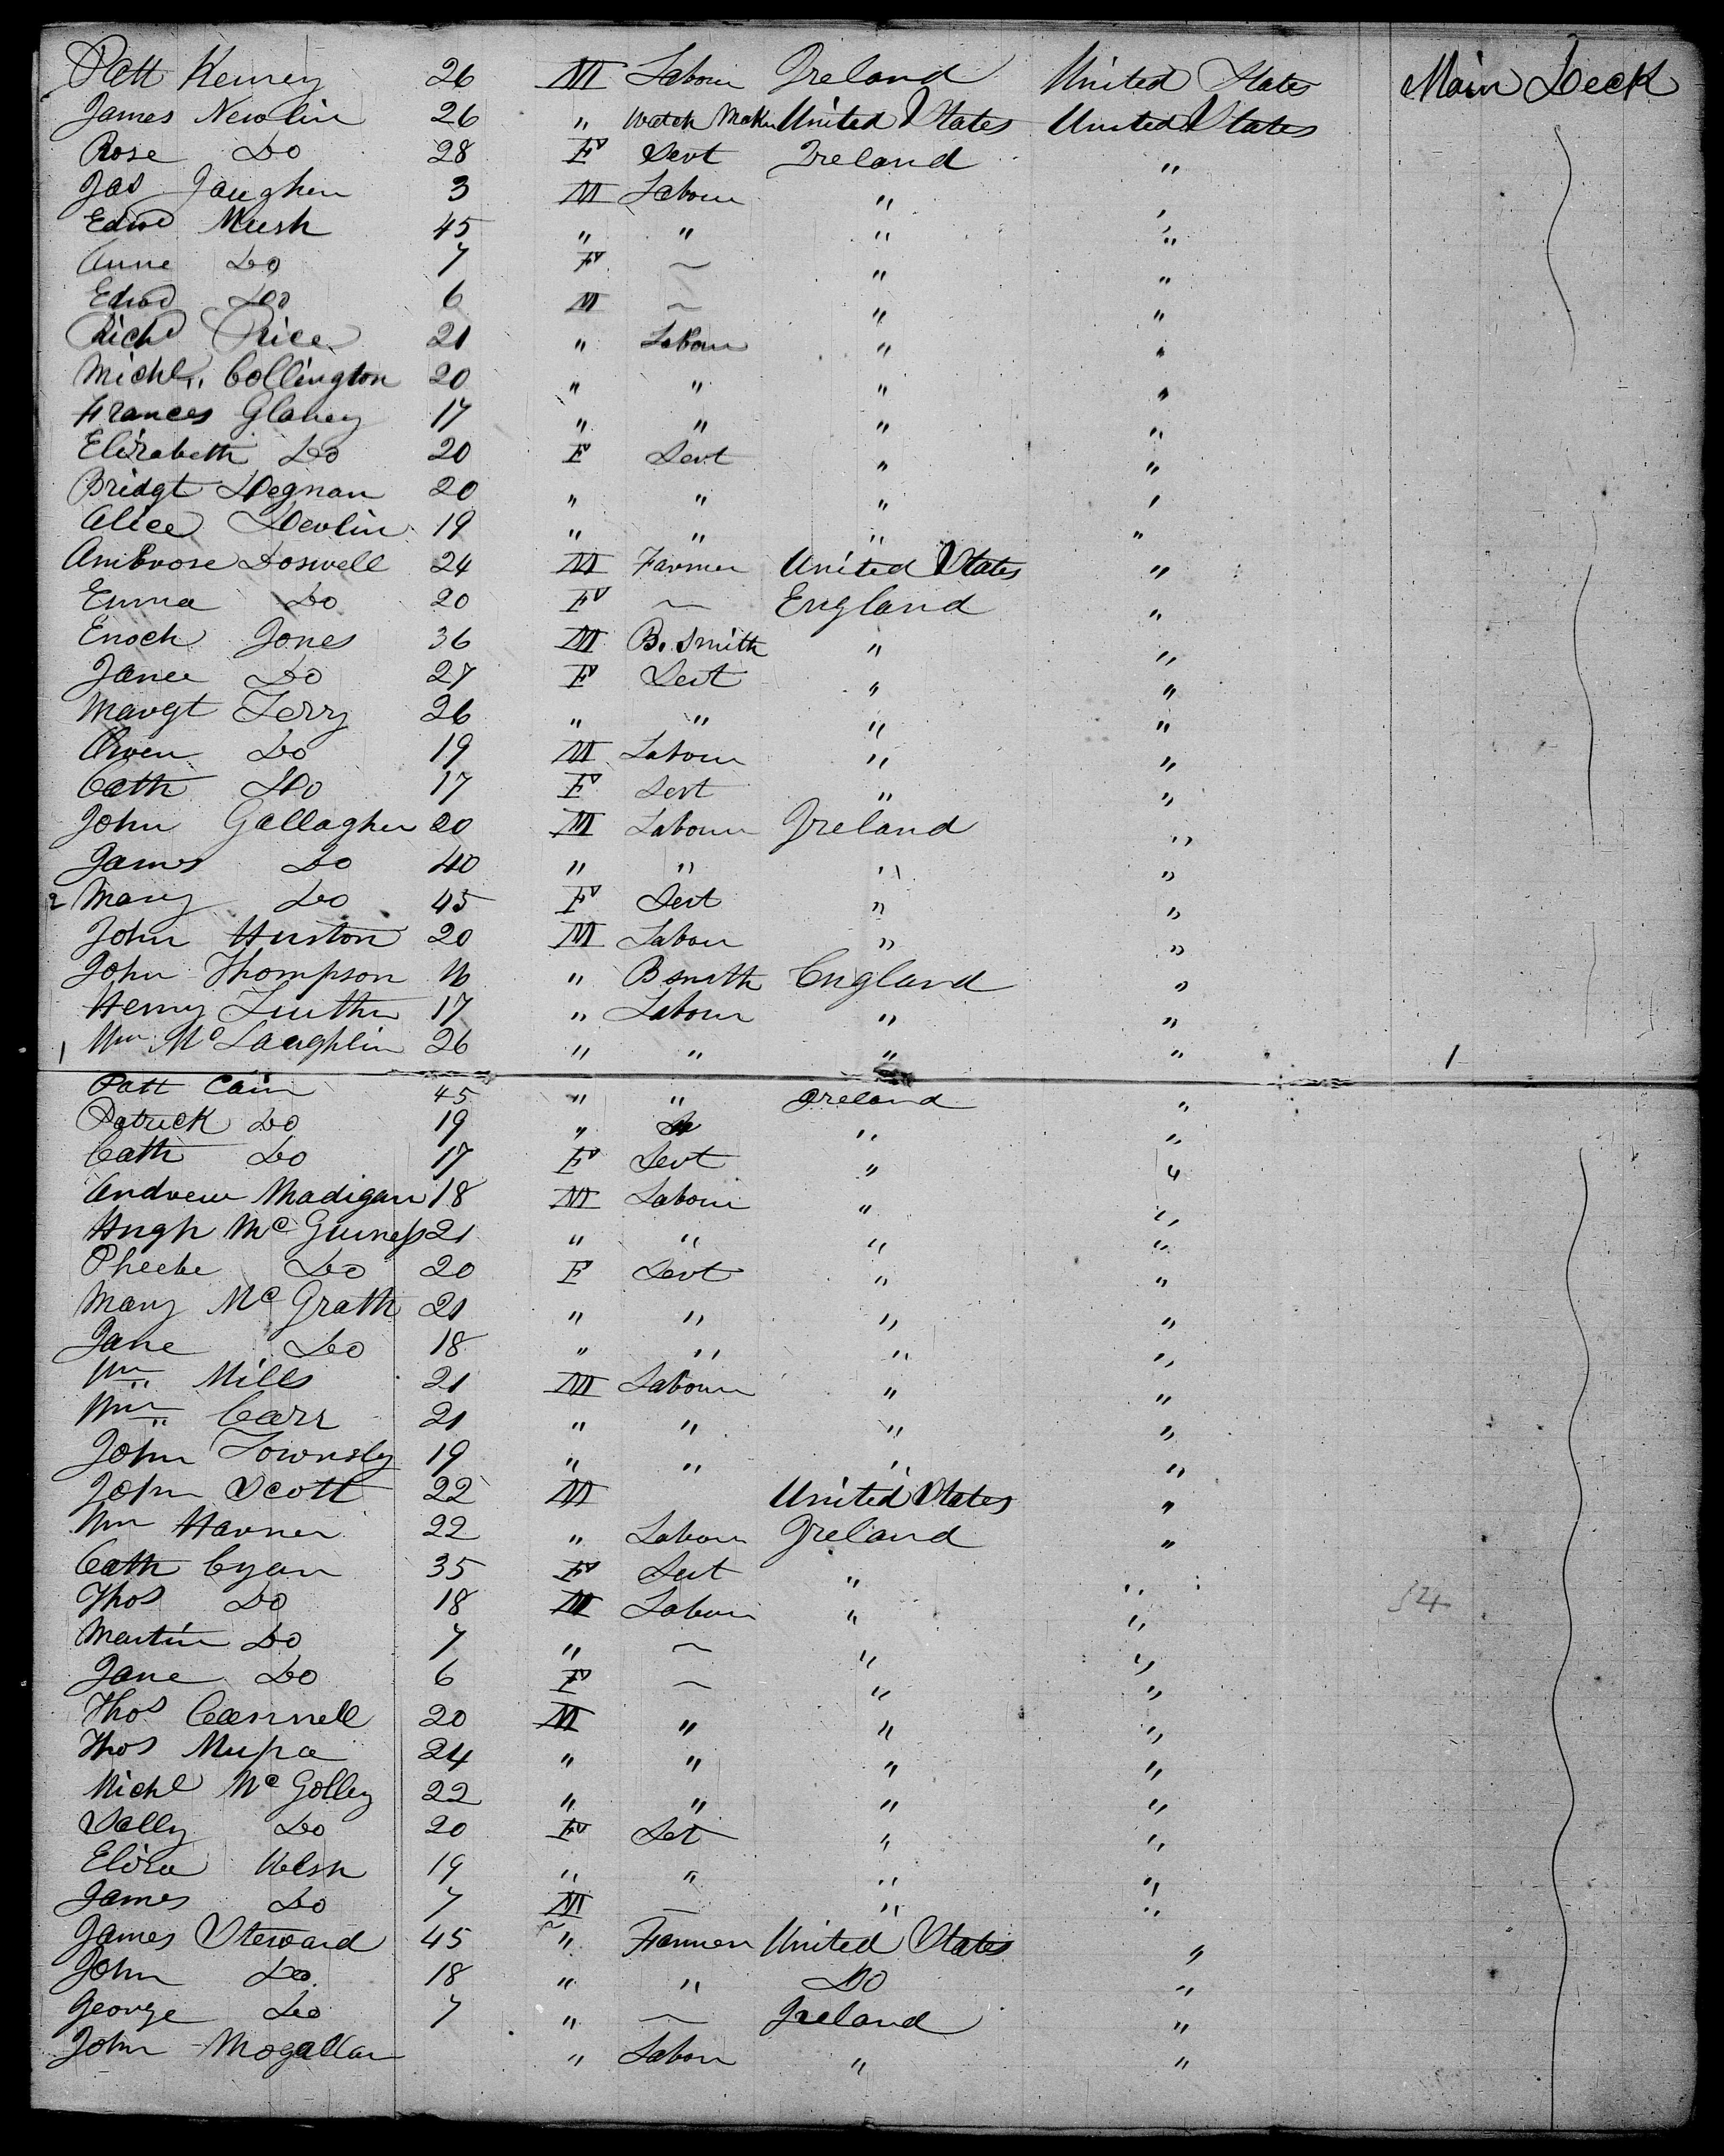 Patt Kenney 26 M Labour Ireland United States Main Deck
James Newlin 26 " Watch Maker United States United States
Rose Do 28 F Servt Ireland "
Jas Gaughen 3 M Labour " "
Edwd Mush 45 " " " "
Anne Do 7 F ~ " "
Edwd Do 6 M ~ " "
Richd Price 21 " Labour " "
Michl Collington 20 " " " "
Frances Glaney 17 " " " "
Elizabeth Do 20 F Servt " "
Bridgt Degnan 20 " " " "
Alice Devlin 19 " " " "
Ambrose Doswell 24 M Farmer United States "
Emma Do 20 F ~ England "
Enoch Jones 36 M B. Smith " "
Jane Do 27 F Servt " "
Margt Terry 26 " " " "
Owen Do 19 M Labour " "
Cath Do 17 F Servt " "
John Gallagher 20 M Labour Ireland "
James Do 40 " " " "
2 Mary Do 45 F Servt " "
John Huston 20 M Labour " "
John Thompson 16 " B smith England "
Henry 17 " Labour " "
1 Wm McLaughlin 26 " " " " 1
Patt Cain 45 " " Ireland "
Patrick Do 19 " Do " "
Cath Do 17 F Servt " "
Andrew Madigan 18 M Labour " "
Hugh McGuiness 21 " " " "
Pheebe Do 20 F Servt " "
Mary McGrath 21 " " " "
Jane Do 18 " " " "
Wm Mills 21 M Labour " "
Wm Carr 21 " " " "
John Townsly 19 " " " "
John Scott 22 M United States "
Wm Harner 22 " Labour Ireland "
Cath Cyan 35 F Servt " "
Thos Do 18 M Labour " " 524
Martin Do 7 " ~ " "
Jane Do 6 F ~ " "
Thos Cannell 20 M " " "
Thos Mupa 24 " " " "
Michl McGolley 22 " " " "
Sally Do 20 F Set " "
Eliza Welsh 19 " " " "
James Do 7 M ~ " "
James Steward 45 " Farmer United States "
John Do 18 " " Do "
George Do 7 " ~ Ireland "
John Mogallan " Labour " "